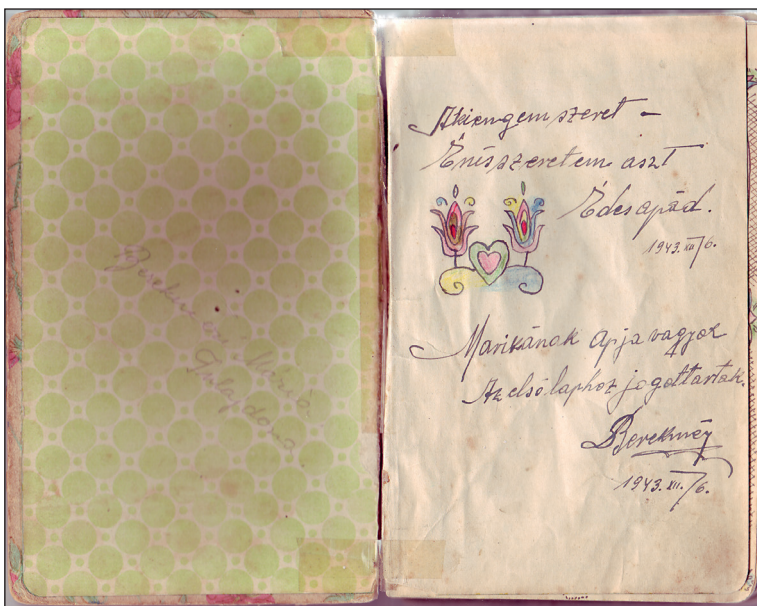 Mária
Tulajdona
Akiengem szeret –
Énisszeretem aszt
Édesapád.
1943. XII/6.
Marikának apja vagyok
Az első laphoz jogottartok.
1943. XII./6.